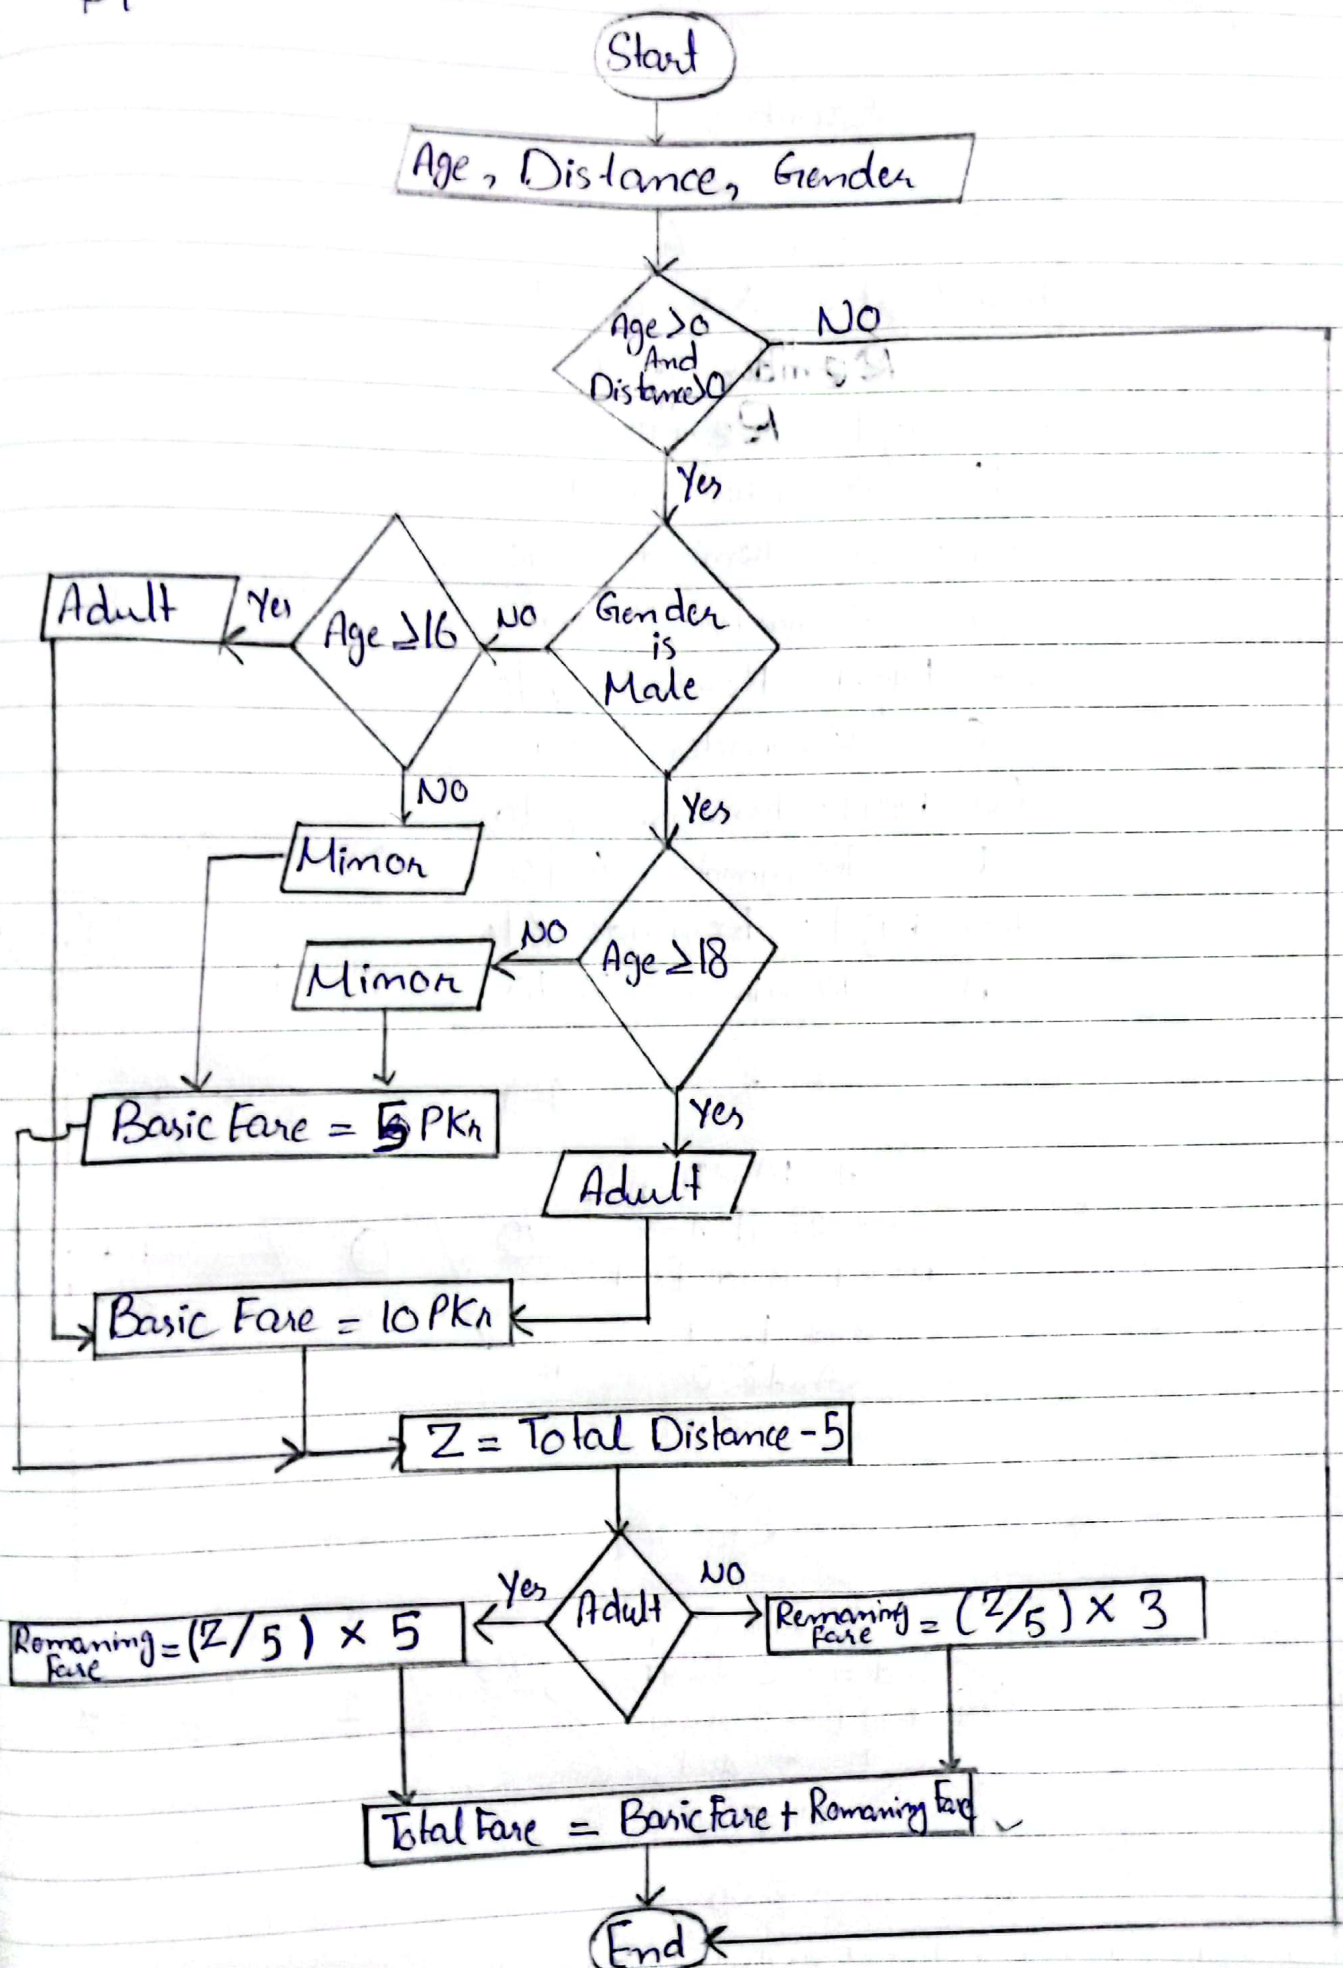 Start
Age, Distance, Gender
Age>0
And
Distance>0
NO
Yes
Gender
is
Male
NO
Age ≥16
Yes
Adult
NO
Minor
Yes
Age ≥18
NO
Minor
Basic Fare = 5 PKr
Yes
Adult
Basic Fare = 10 PKr
Z = Total Distance - 5
Adult
Yes
NO
Romaning = (Z/5) × 5
Fare
Remaning = (Z/5) × 3
Fare
Total Fare = Basic Fare + Romaning Fare
End